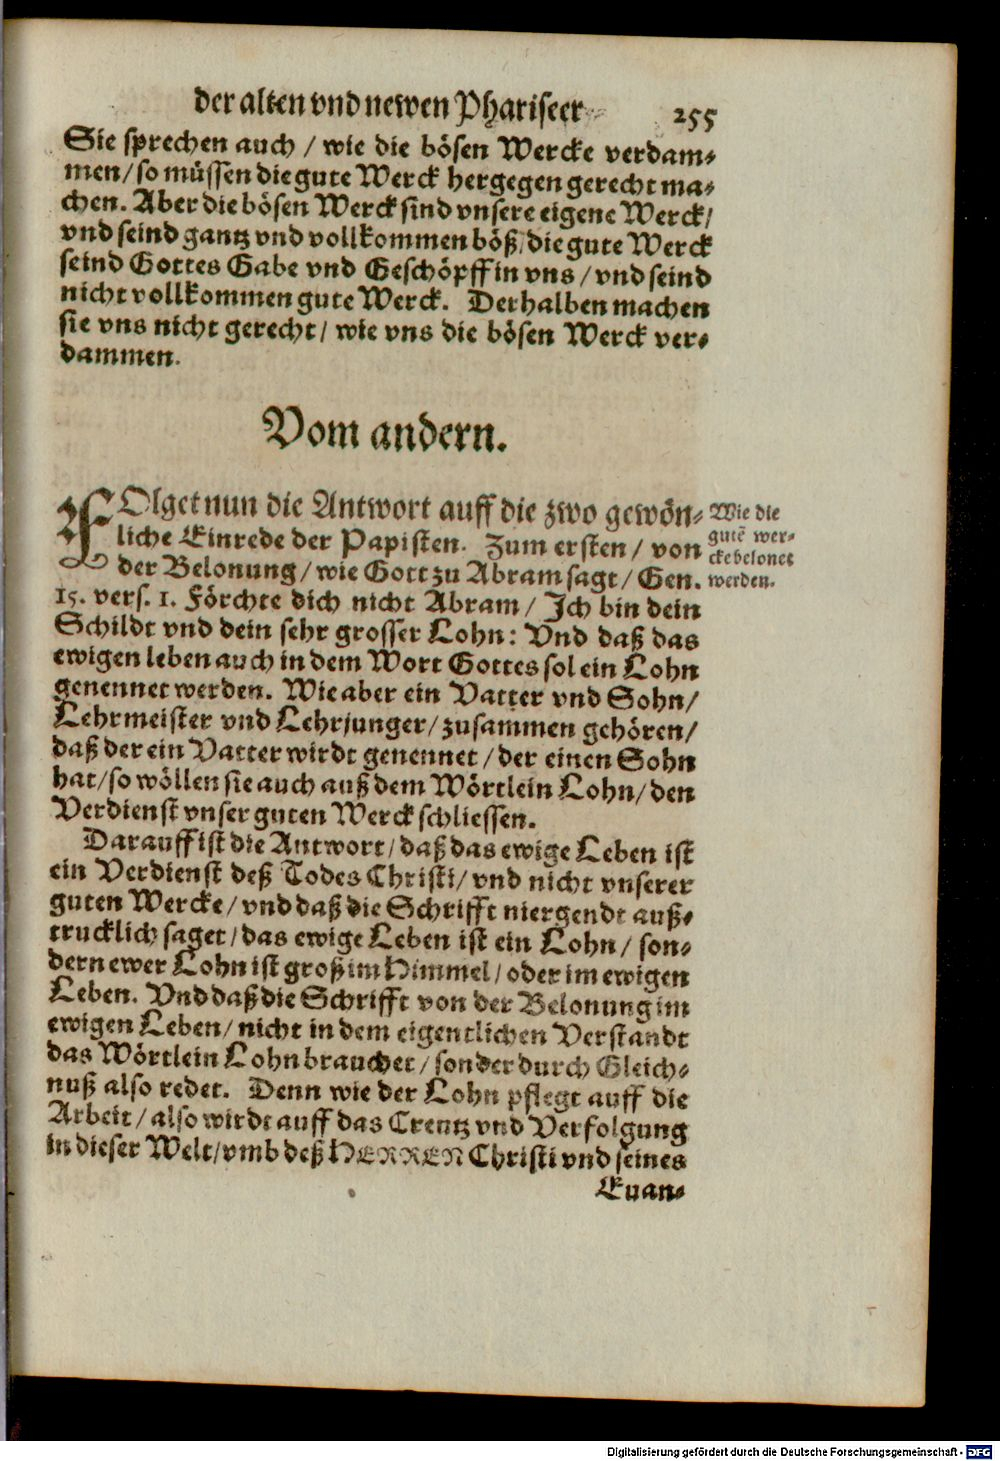 der alten vnd newen Phariseer 255
Sie sprechen auch / wie die bösen Wercke verdam-
men / so müssen die gute Werck hergegen gerecht ma-
chen. Aber die bösen Werck sind vnsere eigene Werck /
vnd seind gantz vnd vollkommen böß / die gute Werck
seind Gottes Gabe vnd Geschöpff in vns / vnd seind
nicht vollkommen gute Werck. Derhalben machen
sie vns nicht gerecht / wie vns die bösen Werck ver-
dammen.
Vom andern.
FOlget nun die Antwort auff die zwo gewön-
liche Einrede der Papisten. Zum ersten / von
der Belonung / wie Gott zu Abram sagt / Gen.
15. vers. 1. Förchte dich nicht Abram / Ich bin dein
Schildt vnd dein sehr grosser Lohn: Vnd daß das
ewigen leben auch in dem Wort Gottes sol ein Lohn
genennet werden. Wie aber ein Vatter vnd Sohn /
Lehrmeister vnd Lehrjunger / zusammen gehören /
daß der ein Vatter wirdt genennet / der einen Sohn
hat / so wöllen sie auch auß dem Wörtlein Lohn / den
Verdienst vnser guten Werck schliessen.
Darauff ist die Antwort / daß das ewige Leben ist
ein Verdienst deß Todes Christi / vnd nicht vnserer
guten Wercke / vnd daß die Schrifft niergendt auß-
trucklich saget / das ewige Leben ist ein Lohn / son-
dern ewer Lohn ist groß im Himmel / oder im ewigen
Leben. Vnd daß die Schrifft von der Belonung im
ewigen Leben / nicht in dem eigentlichen Verstandt
das Wörtlein Lohn brauchet / sonder durch Gleich-
nuß also redet. Denn wie der Lohn pflegt auff die
Arbeit / also wirdt auff das Creutz vnd Verfolgung
in dieser Welt / vmb deß HERREN Christi vnd seines
Euan-
Wie die
gutē wer-
cke belonet
werden.
Digitalisierung gefördert durch die Deutsche Forschungsgemeinschaft - DFG